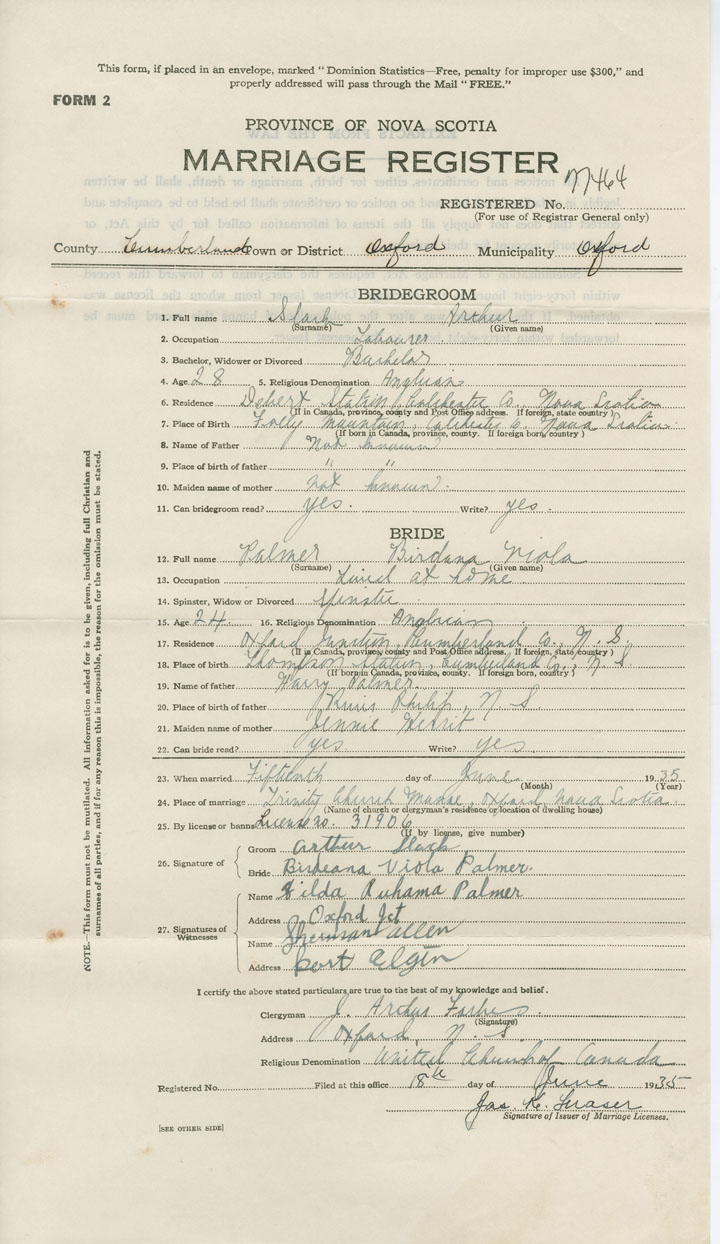 This form, if placed in an envelope, marked "Dominion Statistics—Free, penalty for improper use $300," and
properly addressed will pass through the Mail "FREE."
FORM 2
PROVINCE OF NOVA SCOTIA
MARRIAGE REGISTER
REGISTERED No.
(For use of Registrar General only)
County Cumberland Town or District Oxford Municipality Oxford
BRIDEGROOM
1. Full name Slack Arthur
(Surname) (Given name)
2. Occupation Labourer
3. Bachelor, Widower or Divorced Bachelor
4. Age 28 5. Religious Denomination Anglican
6. Residence Debert Station, Colchester Co. Nova Scotia
(If in Canada, province, county and Post Office address. If foreign, state country)
7. Place of Birth Folly Mountain, Colchester Co. Nova Scotia
(If born in Canada, province, county. If foreign born, country)
8. Name of Father Not known
9. Place of birth of father " "
10. Maiden name of mother not known.
11. Can bridegroom read? yes. Write? yes.
BRIDE
12. Full name Palmer Birdena Viola
(Surname) (Given name)
13. Occupation Lived at home
14. Spinster, Widow or Divorced Spinster
15. Age 24 16. Religious Denomination Anglican
17. Residence Oxford Junction, Cumberland Co., N. S.
(If in Canada, province, county and Post Office address. If foreign, state country)
18. Place of birth Thompson Station, Cumberland Co., N. S.
(If born in Canada, province, county. If foreign born, country)
19. Name of father Harry Palmer
20. Place of birth of father Philip, N. S.
21. Maiden name of mother Jennie
22. Can bride read? yes Write? yes
23. When married Fifteenth day of June 1935
(Month) (Year)
24. Place of marriage Trinity Church Manse, Oxford, Nova Scotia
(Name of church or clergyman's residence or location of dwelling house)
25. By license or banns License no. 31906
(If by license, give number)
26. Signature of
Groom Arthur Slack
Bride Birdeana Viola Palmer
27. Signatures of Witnesses
Name Hilda Ruhama Palmer
Address Oxford Jct
Name Sherman Allen
Address Port Elgin
I certify the above stated particulars are true to the best of my knowledge and belief.
Clergyman J. Arthur Forbes
(Signature)
Address Oxford, N. S.
Religious Denomination United Church of Canada
Registered No. Filed at this office 18th day of June 1935
Jas. K. Fraser
Signature of Issuer of Marriage Licenses.
[SEE OTHER SIDE]
NOTE.—This form must not be mutilated. All information asked for is to be given, including full Christian and
surnames of all parties, and if for any reason this is impossible, the reason for the omission must be stated.